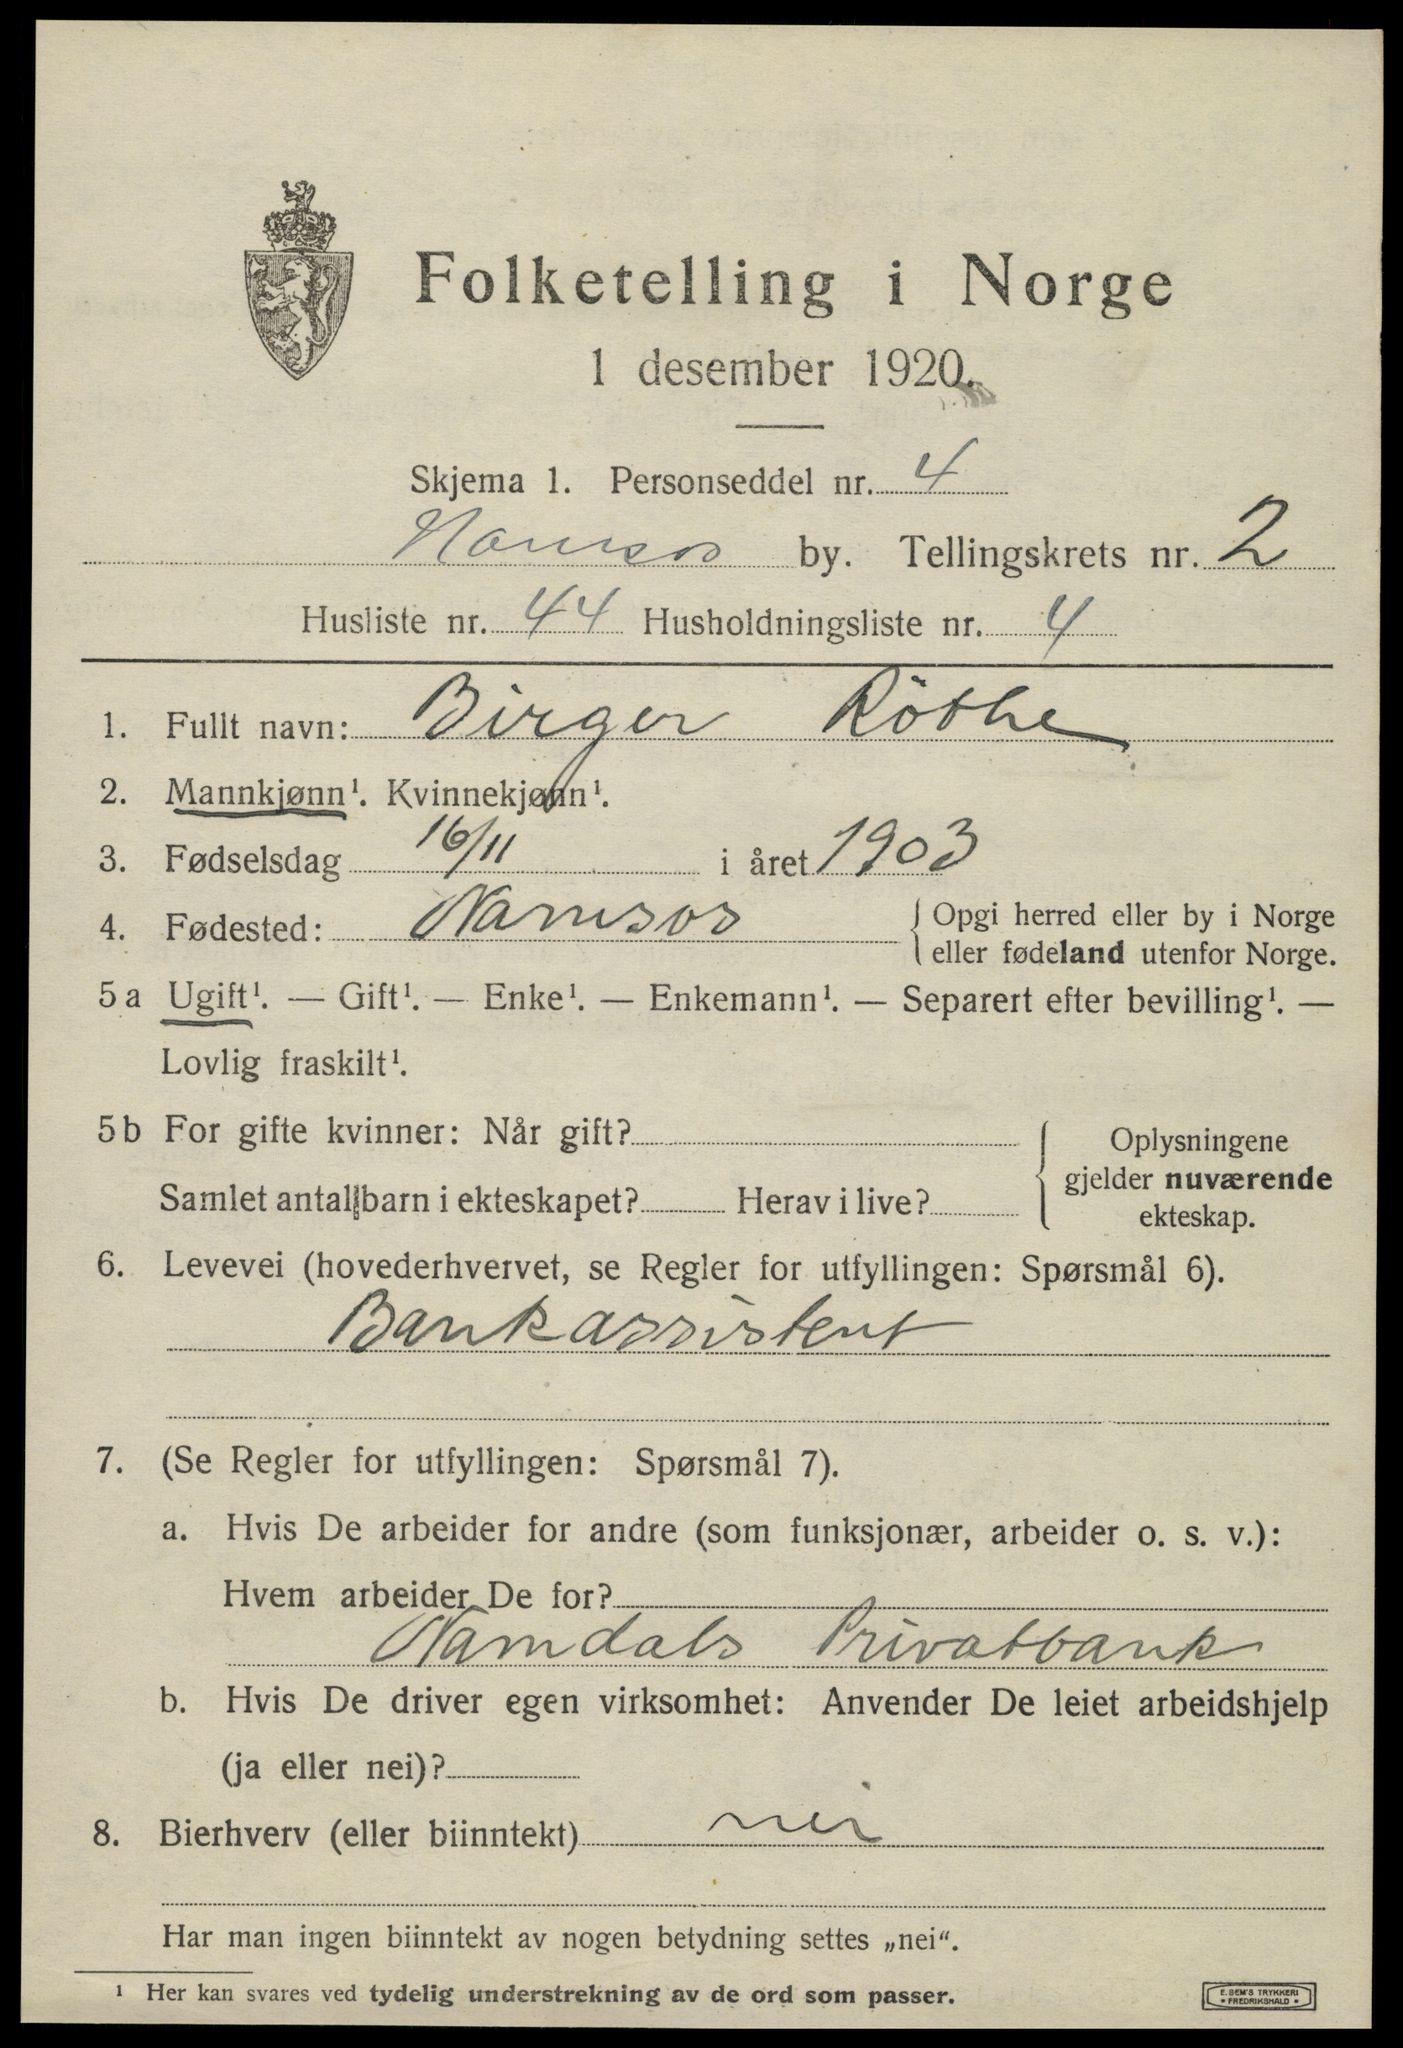 Folketelling i Norge
1 desember 1920.
Skjema 1. Personseddel nr. 4
Namsos by. Tellingskrets nr. 2
Husliste nr. 44 Husholdningsliste nr. 4
1. Fullt navn: Birger Röthe
2. Mannkjønn¹. Kvinnekjønn¹.
3. Fødselsdag 16/11 i året 1903
4. Fødested: Namsos { Opgi herred eller by i Norge
eller fødeland utenfor Norge.
5 a Ugift¹. — Gift¹. — Enke¹. — Enkemann¹. — Separert efter bevilling¹. —
Lovlig fraskilt¹.
5 b For gifte kvinner: Når gift?
Samlet antal barn i ekteskapet? Herav i live?
{ Oplysningene
gjelder nuværende
ekteskap.
6. Levevei (hovederhvervet, se Regler for utfyllingen: Spørsmål 6).
Bankassistent
7. (Se Regler for utfyllingen: Spørsmål 7).
a. Hvis De arbeider for andre (som funksjonær, arbeider o. s. v.):
Hvem arbeider De for?
Namdals Privatbank
b. Hvis De driver egen virksomhet: Anvender De leiet arbeidshjelp
(ja eller nei)?
8. Bierhverv (eller biinntekt) nei
Har man ingen biinntekt av nogen betydning settes „nei“.
¹ Her kan svares ved tydelig understrekning av de ord som passer.
E. SEM'S TRYKKERI
• FREDRIKSHALD •